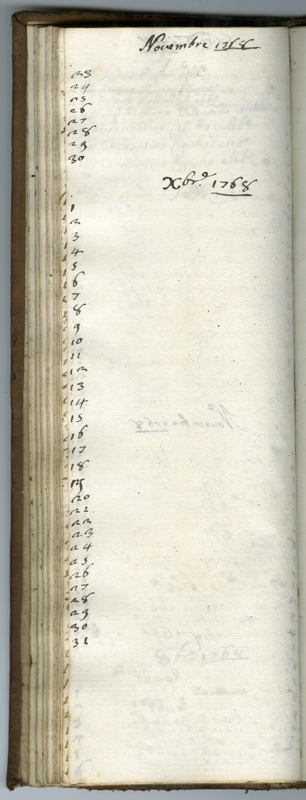 Novembre 1768
23
24
25
26
27
28
29
30
Xbr.e 1768
1
2
3
4
5
6
7
8
9
10
11
12
13
14
15
16
17
18
19
20
21
22
23
24
25
26
27
28
29
30
31